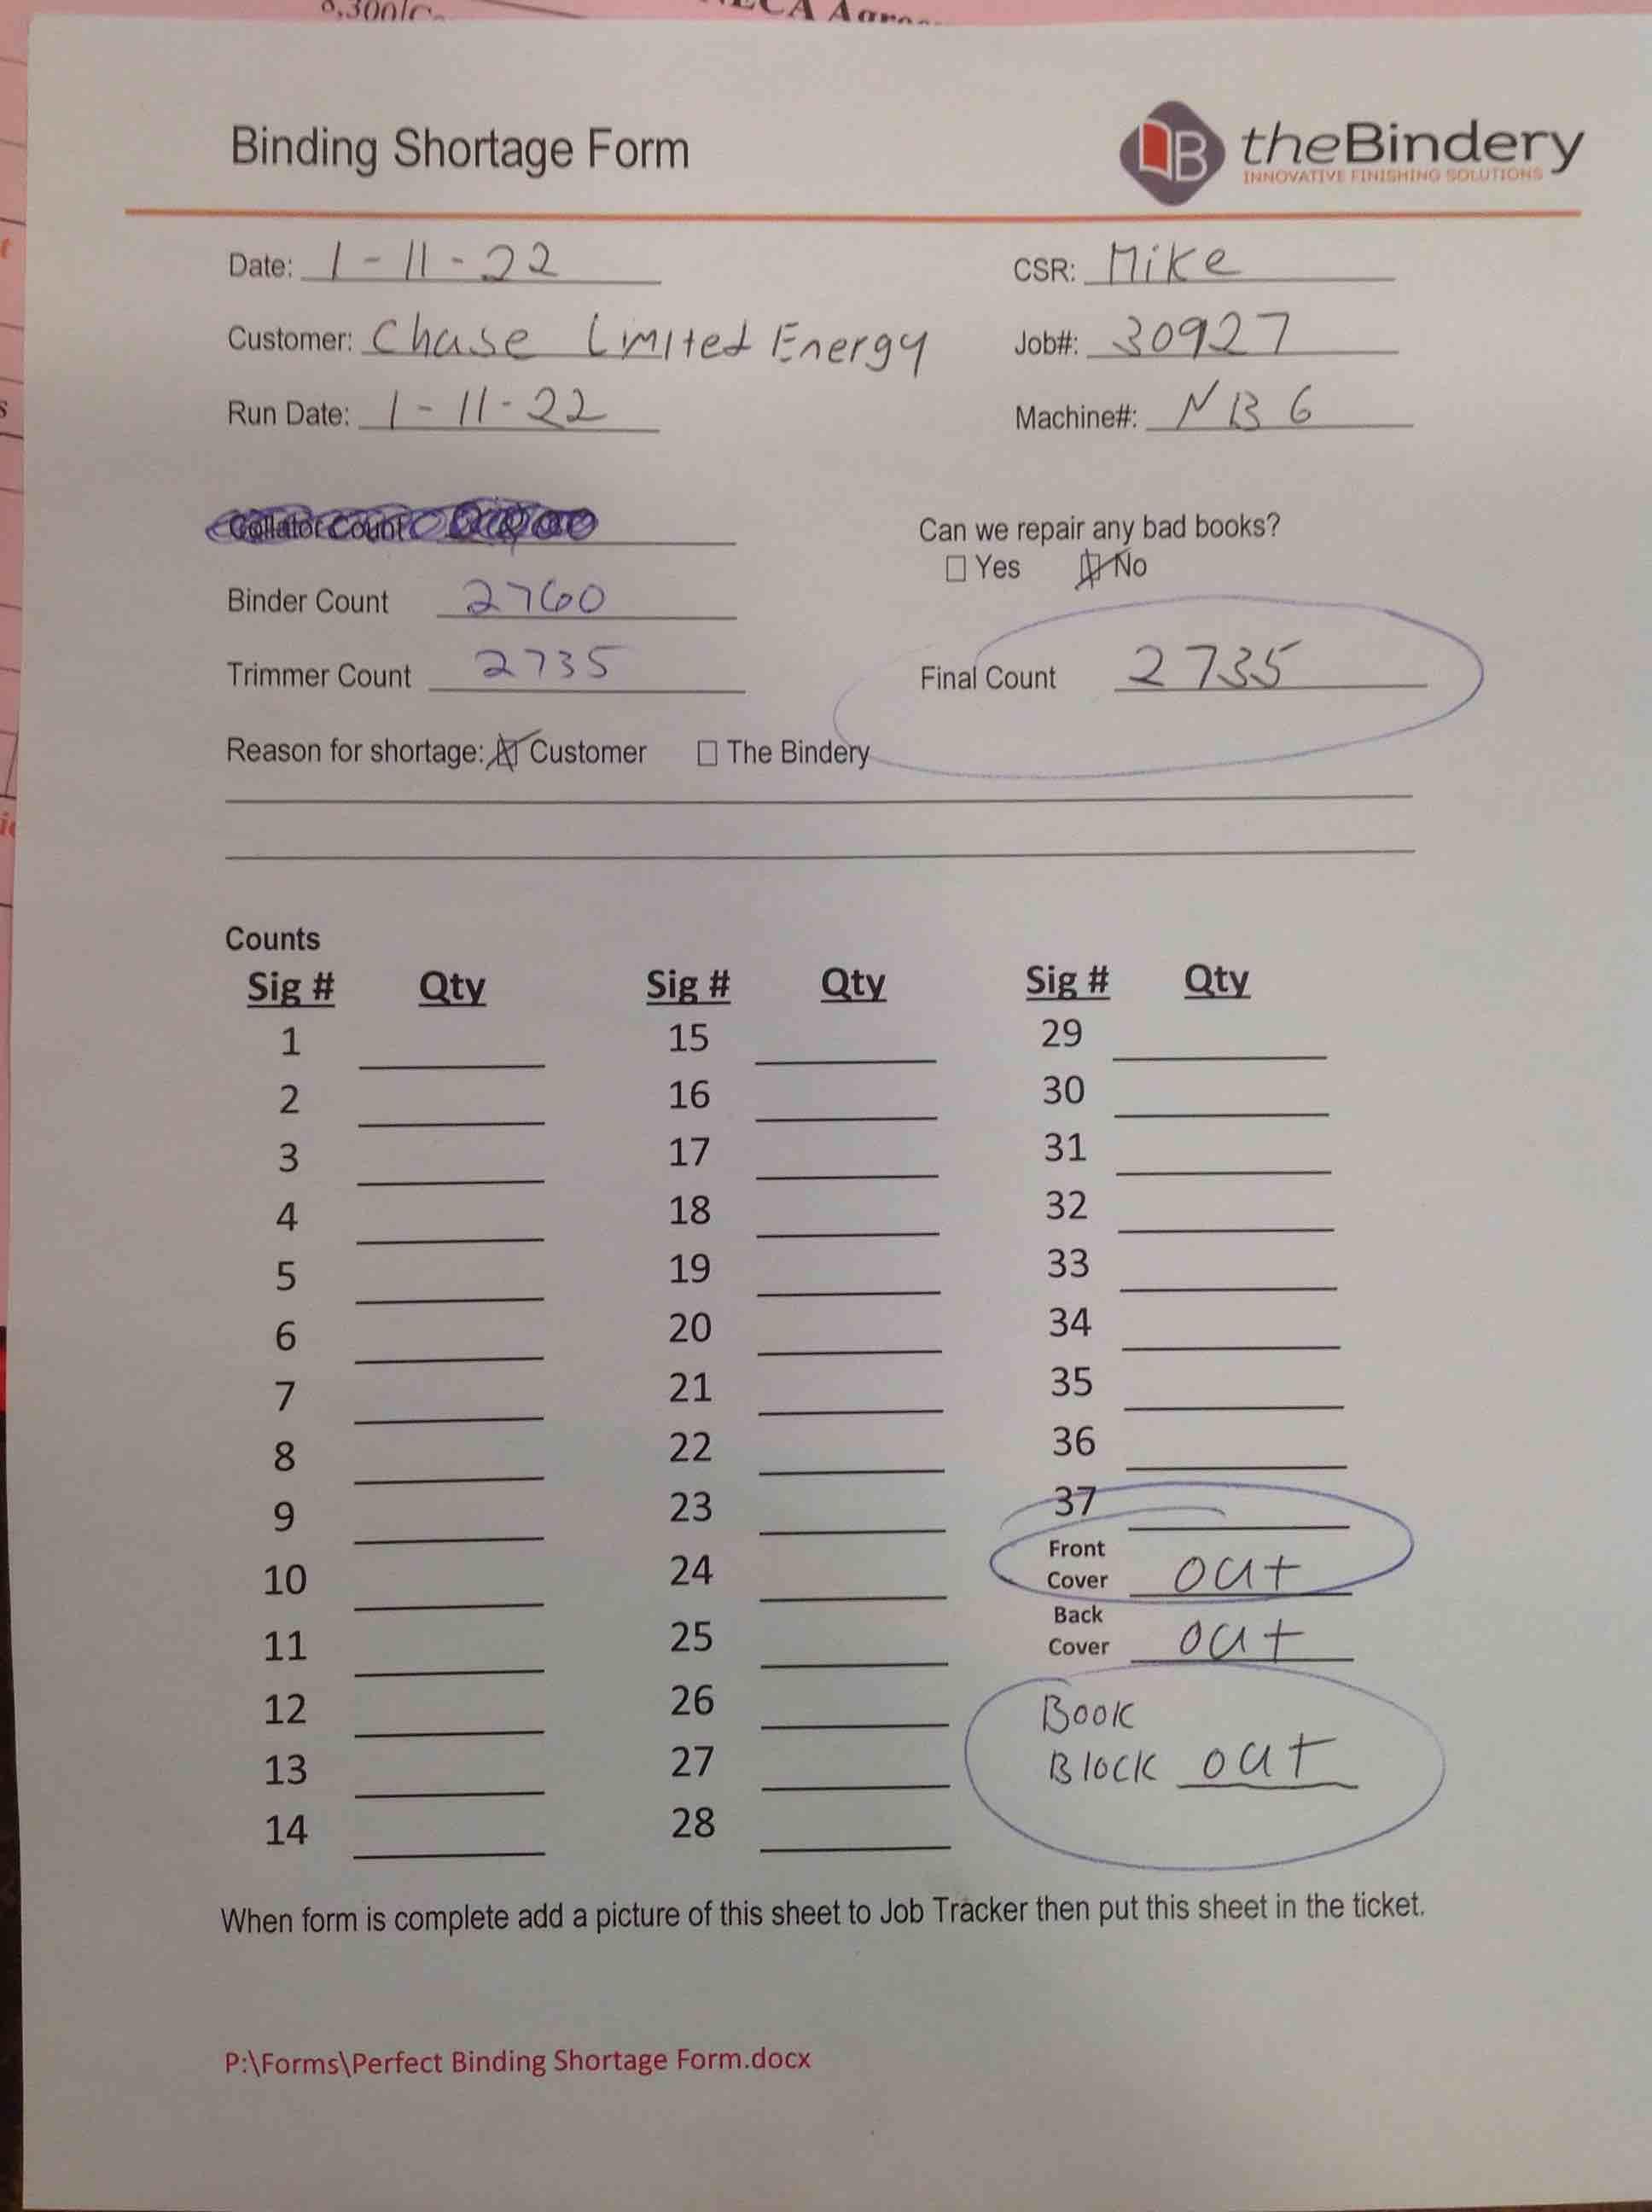 Binding Shortage Form
theBindery
INNOVATIVE FINISHING SOLUTIONS
Date: 1-11-22 CSR: Mike
Customer: Chase Limited Energy Job#: 30927
Run Date: 1-11-22 Machine#: NB 6
Collator Count Can we repair any bad books?
Yes No
Binder Count 2760
Trimmer Count 2735 Final Count 2735
Reason for shortage: Customer The Bindery
Counts
Sig # Qty Sig # Qty Sig # Qty
1 15 29
2 16 30
3 17 31
4 18 32
5 19 33
6 20 34
7 21 35
8 22 36
9 23 37
10 24 Front Cover out
11 25 Back Cover out
12 26 Book
13 27 Block out
14 28
When form is complete add a picture of this sheet to Job Tracker then put this sheet in the ticket.
P:\Forms\Perfect Binding Shortage Form.docx